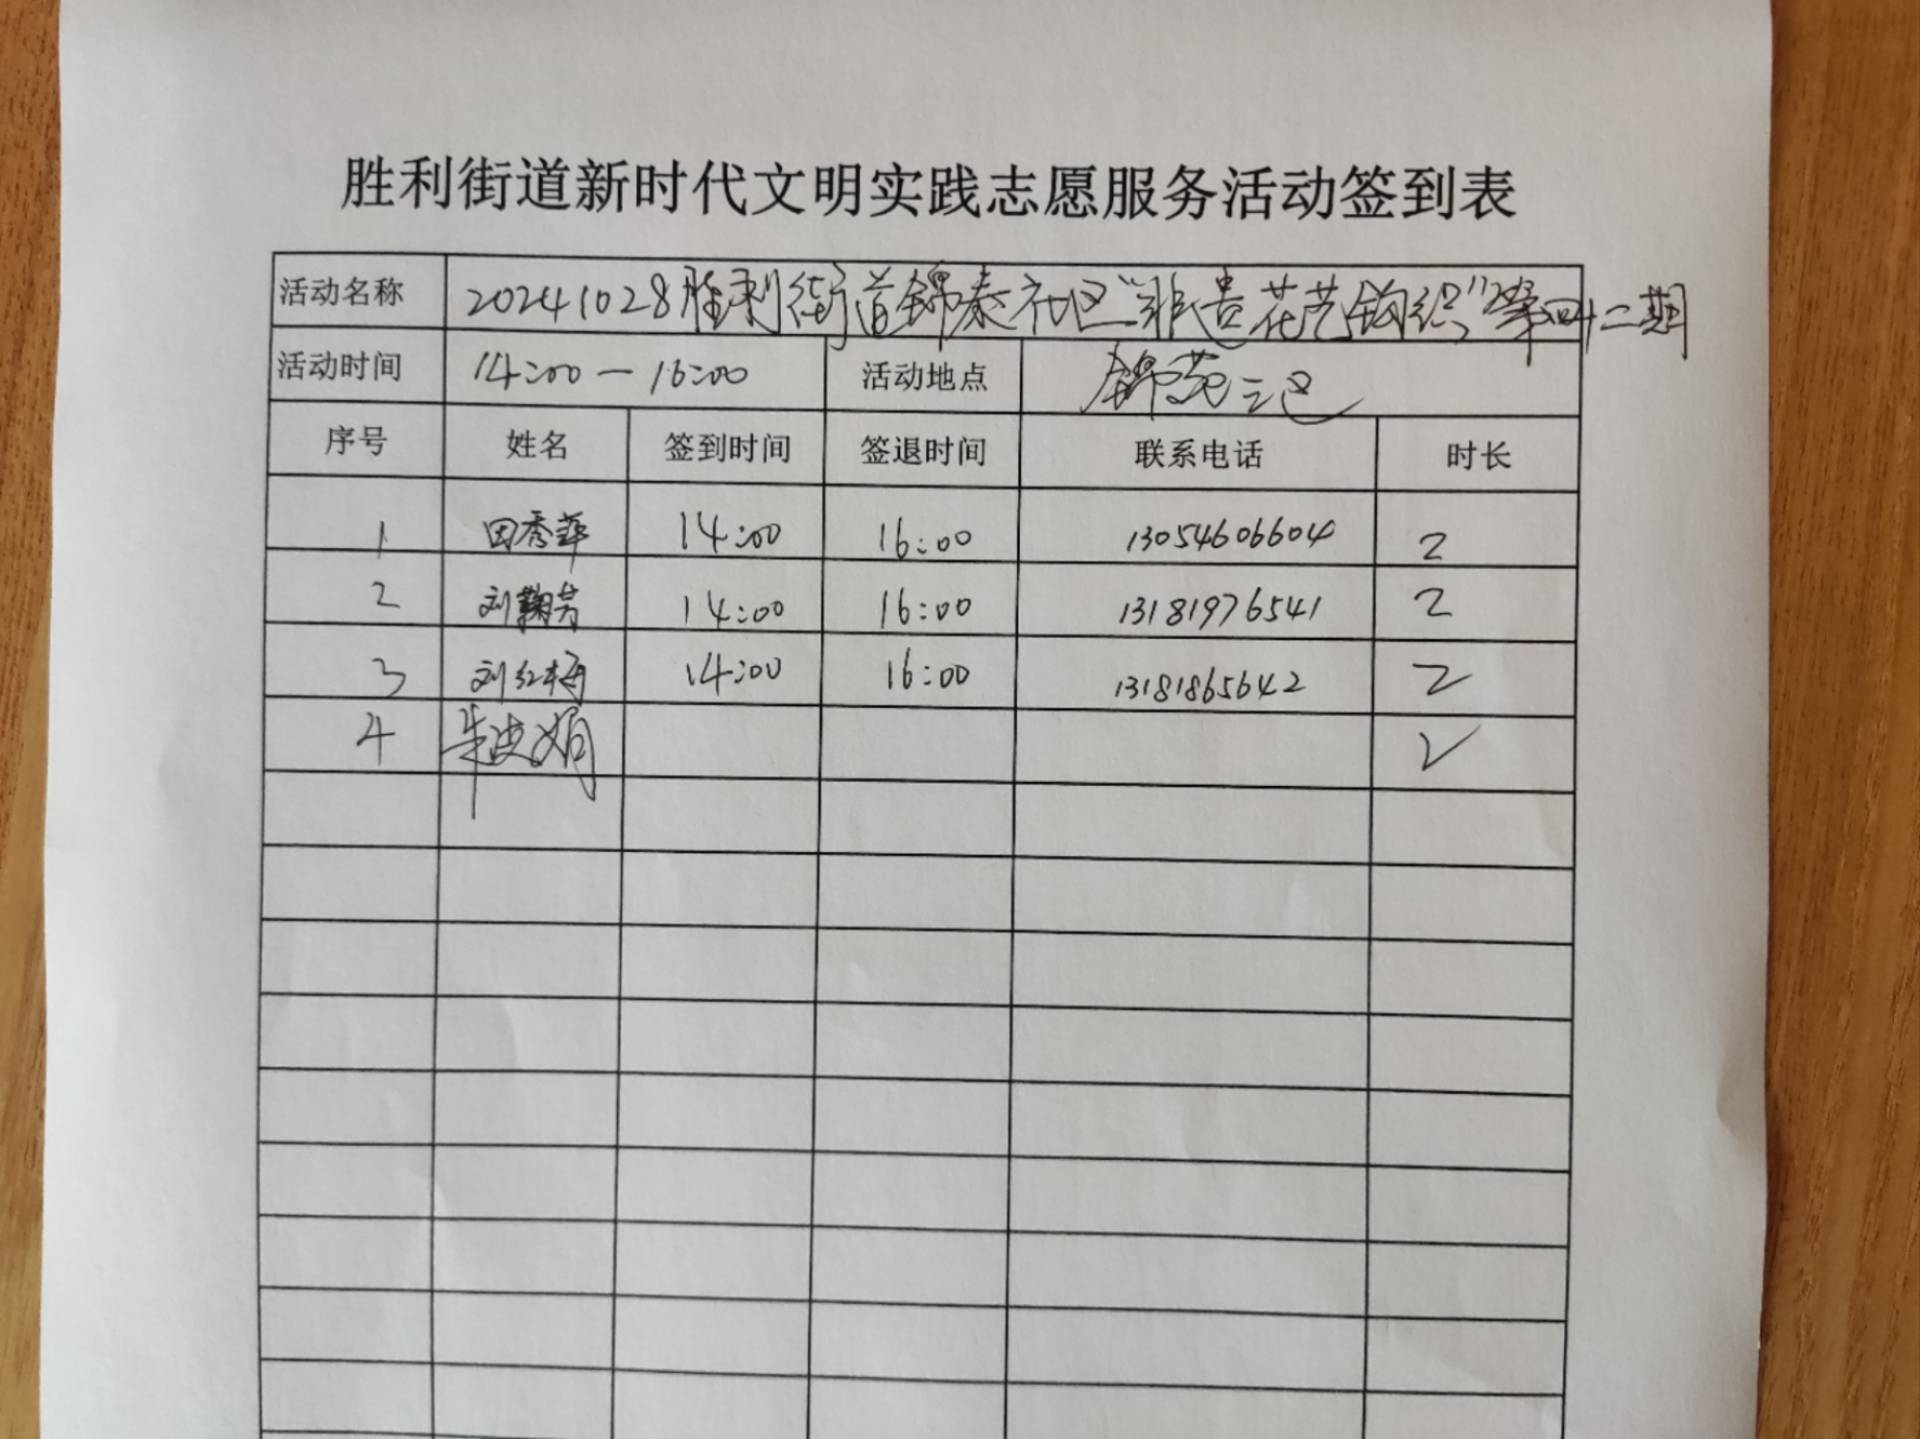 胜利街道新时代文明实践志愿服务活动签到表
活动名称 20241028胜利街道锦泰社区"非遗花艺钩织"第四十二期
活动时间 14:00—16:00 活动地点 锦苑三区
序号 姓名 签到时间 签退时间 联系电话 时长
1 田秀萍 14:00 16:00 13054606604 2
2 刘菊芳 14:00 16:00 13181976541 2
3 刘红梅 14:00 16:00 13181865642 2
4 2